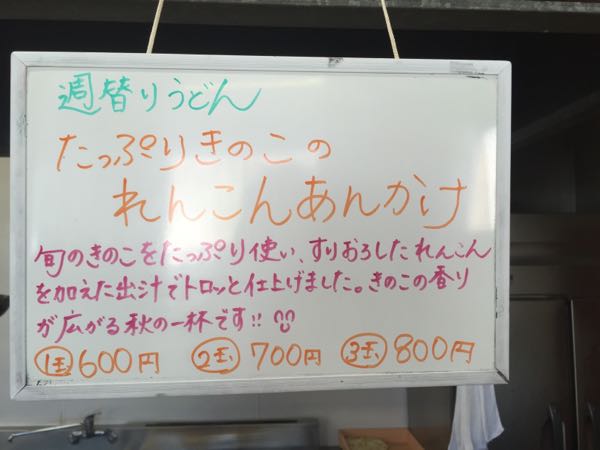 週替りうどん
たっぷりきのこの
れんこんあんかけ
旬のきのこをたっぷり使い、すりおろしたれんこん
を加えた出汁でトロッと仕上げました。きのこの香り
が広がる秋の一杯です!!
1玉 600円 2玉 700円 3玉 800円